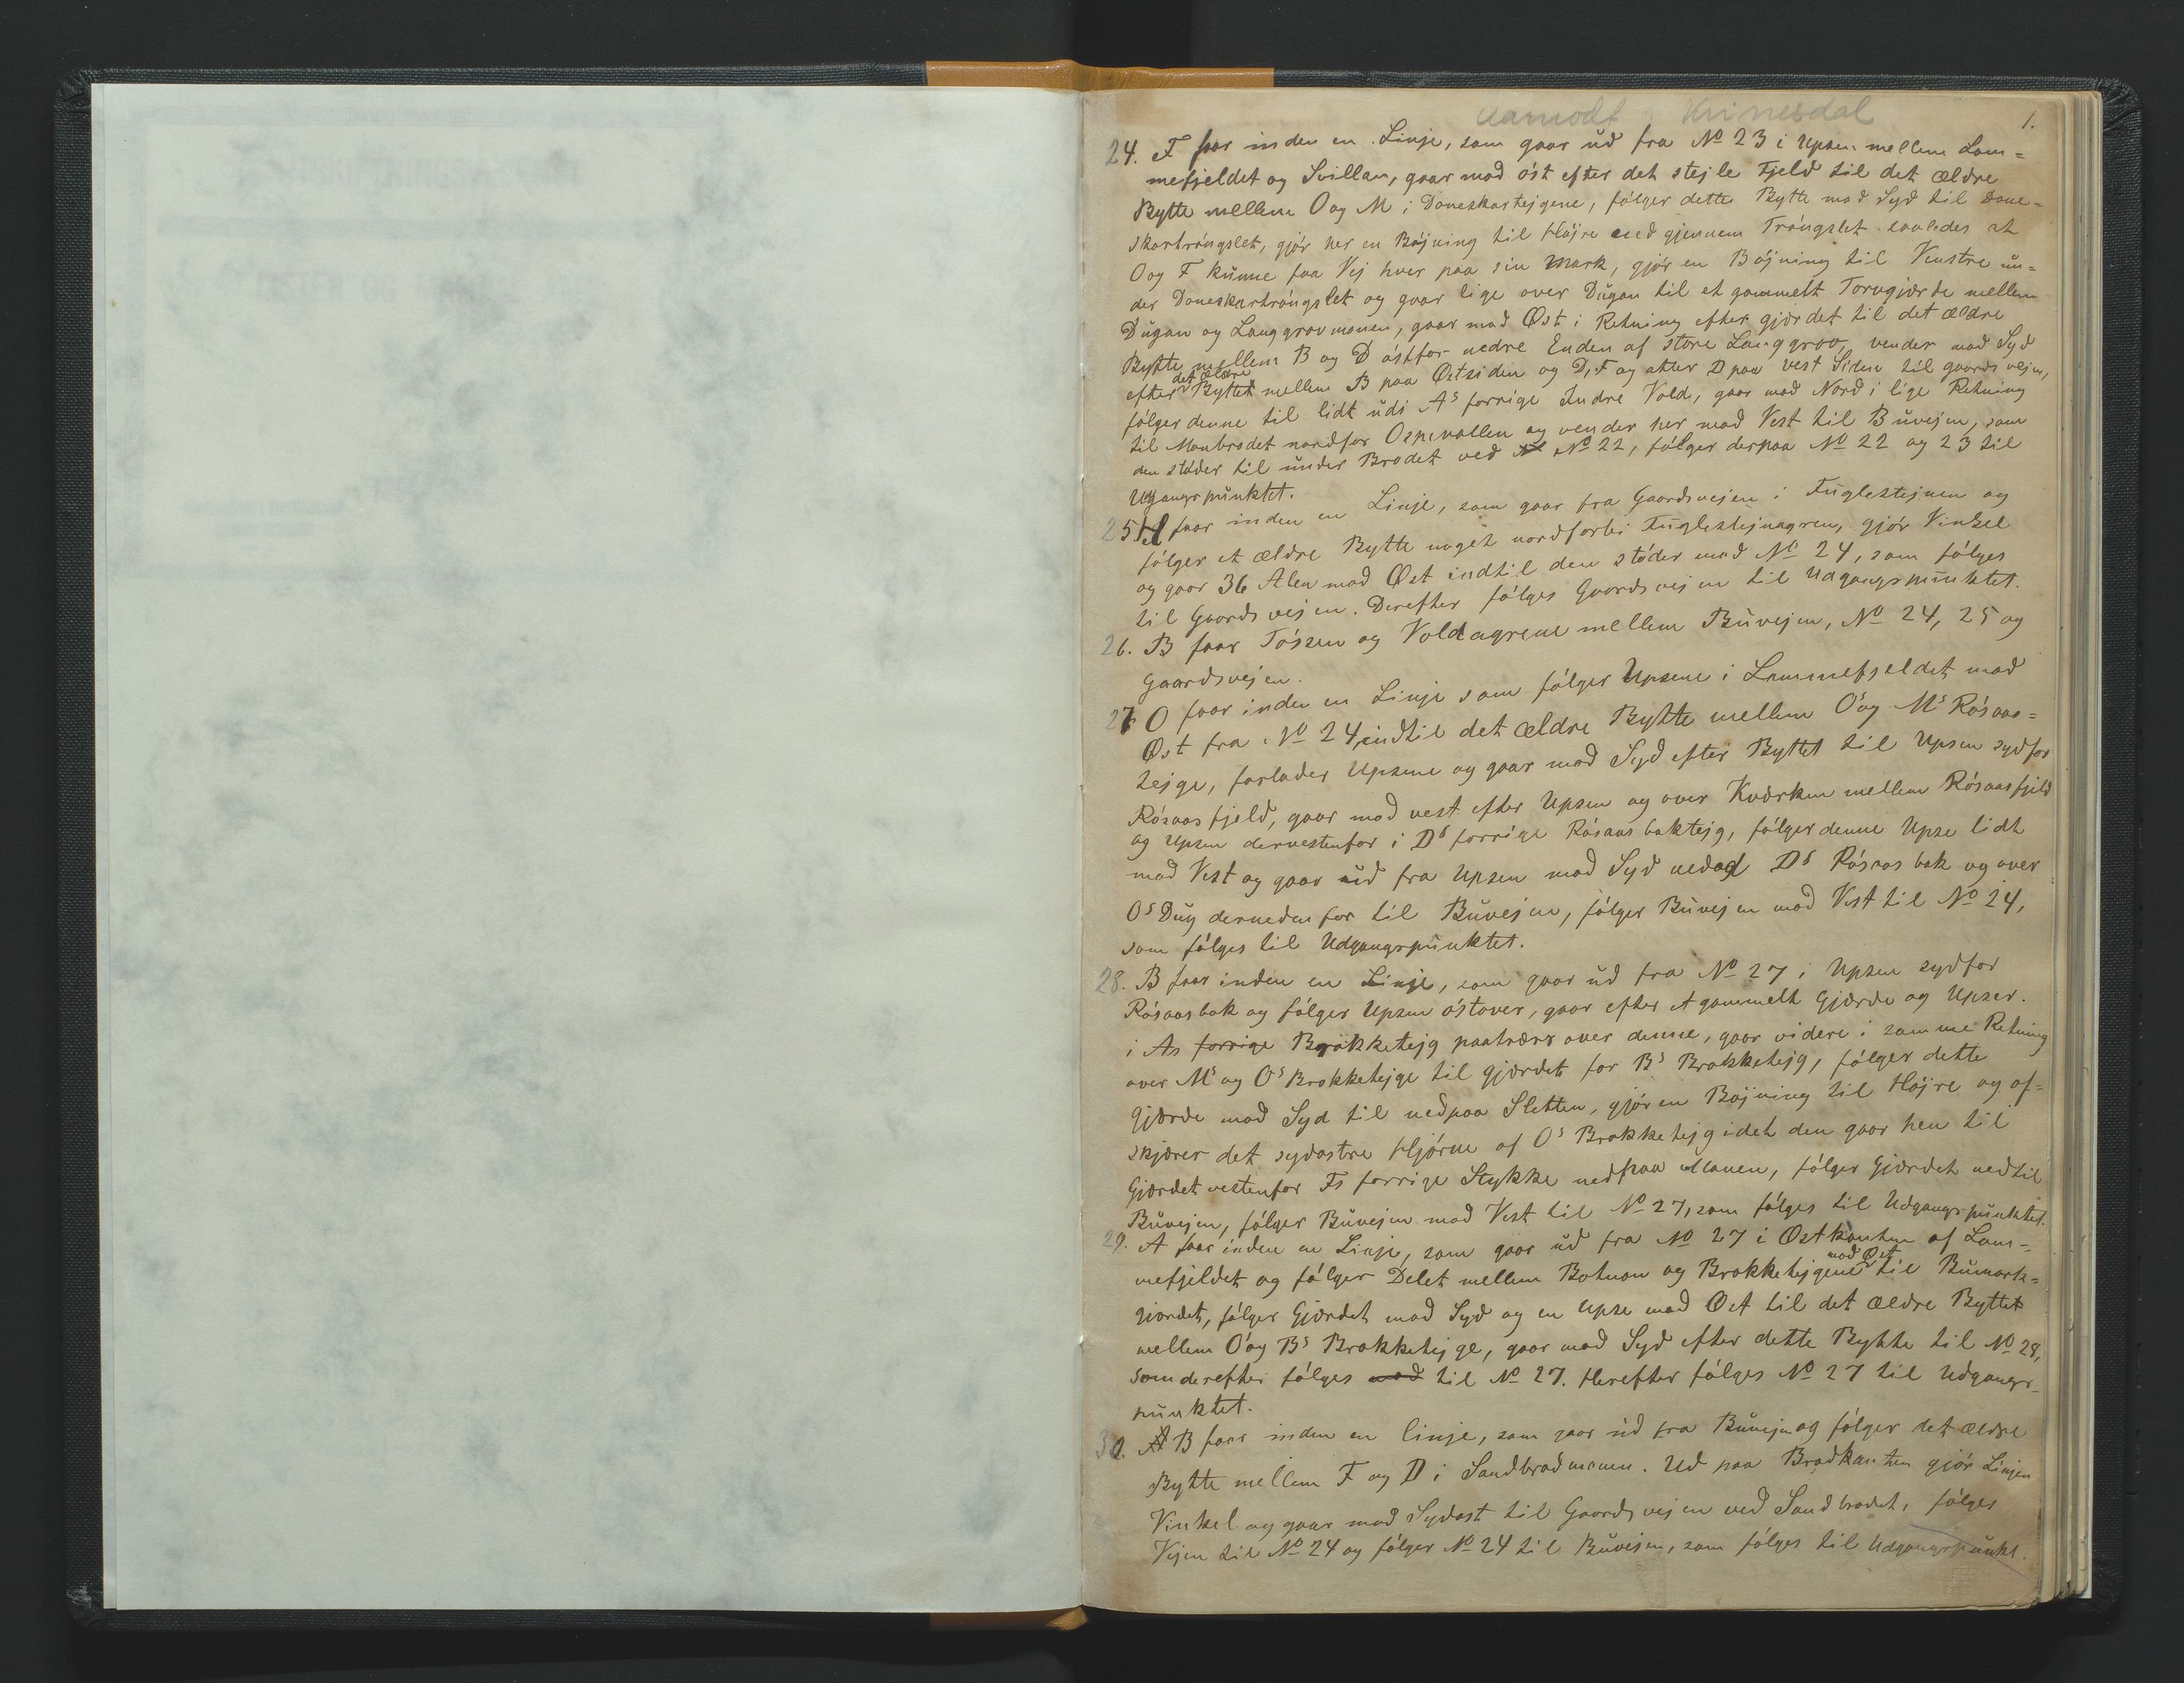 Aamodt, Kvinesdal
1.
24. F faar inden en Linje, som gaar ud fra No 23 i Upsen mellem Lom=
mefjeldet og Svillan, gaar mod öst efter det stejle Fjeld til det ældre
Bytte mellem O og M i Doneskartejgene, fölger dette Bytte mod Syd til Done=
skartrångslet, gjör her en Böjning til Höjre ned gjennem Trångslet saaledes at
O og F kunne faa Vej hver paa sin Mark, gjör en Böjning til Venstre un=
der Doneskartrångslet og gaar lige over Dugan til et gammelt Torvgjærde mellem
Dugan og Langgravmonen, gaar mod Øst i Retning efter gjærdet til det ældre
Bytte mellem B og D östfor nedre Enden af store Langgrov, vender mod Syd
efter det ældre Byttet mellem B paa Østsiden og D, F og atter D paa vest Siden til gaardsvejen,
fölger denne til lidt udi As forrige Indre Vold, gaar mod Nord i lige Retning
til Monbrodet nordfor Ospevollen og vender her mod Vest til Buvejen, som
den stöder til under Brodet ved No 22, fölger derpaa No 22 og 23 til
Udgangspunktet.
25. H faar inden en Linje, som gaar fra Gaardsvejen i Fuglestejnen og
fölger et ældre Bytte noget nordforbi Fuglestejnagren, gjör Vinkel
og gaar 36 Alen mod Øst indtil den stöder mod No 24, som fölges
til Gaardsvejen. Derefter fölges Gaardsvejen til Udgangspunktet.
26. B faar Tössen og Voldagrene mellem Buvejen, No 24, 25 og
Gaardsvejen.
27. O faar inden en Linje som fölger Upsene i Lommefjeldet mod
Øst fra No 24, indtil det ældre Bytte mellem Os og Ms Rösaas=
tejge, forlader Upsene og gaar mod Syd efter Byttet til Upsen sydfor
Rösaasfjeld, gaar mod vest efter Upsen og over Kværken mellem Rösaasfjeld
og Upsen dervestenfor i Ds forrige Rösaasbaktejg, fölger denne Upse lidt
mod Vest og gaar ud fra Upsen mod Syd nedad Ds Rösaasbak og over
Os Dug dernedenfor til Buvejen, fölger Buvejen mod Vest til No 24,
som fölges til Udgangspunktet.
28. B faar inden en Linje, som gaar ud fra No 27 i Upsen sydfor
Rösaasbak og fölger Upsen östover, gaar efter et gammelt Gjærde og Upser
i As forrige Brokketejg paatværs over denne, gaar videre i samme Retning
over Ms og Os Brokketejge til gjærdet for Bs Brokketejg, fölger dette
Gjærde mod Syd til nedpaa Sletten, gjör en Böjning til Höjre og af=
skjærer det sydöstre Hjörne af Os Brokketejg idet den gaar hen til
Gjærdet vestenfor Fs forrige Stykke nedpaa Monen, fölger Gjærdet ned til
Buvejen, fölger Buvejen mod Vest til No 27, som fölges til Udgangspunktet.
29. A faar inden en Linje, som gaar ud fra No 27 i Østkanten af Lom=
mefjeldet og fölger Delet mellem Botnan og Brokketejgene mod Øst til Bumark=
gjærdet, fölger Gjærdet mod Syd og en Upse mod Øst til det ældre Byttet
mellem Os og Bs Brokketejge, gaar mod Syd efter dette Bytte til No 28,
som derefter fölges mod til No 27. Herefter fölges No 27 til Udgangs=
punktet.
30. B faar inden en linje, som gaar ud fra Buvejen og fölger det ældre
Bytte mellem F og D i Sandbrodmonen. Ud paa Brodkanten gjör Linjen
Vinkel og gaar mod Sydost til Gaardsvejen ved Sandbrodet, fölger
Vejen til No 24 og fölger No 24 til Buvejen, som fölges til Udgangspunkt.